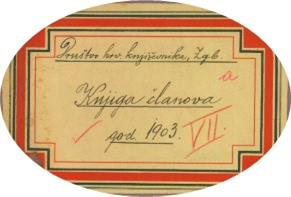 Društvo hrv. književnika, Zgb.
a
Knjiga članova
god. 1903.
VII.